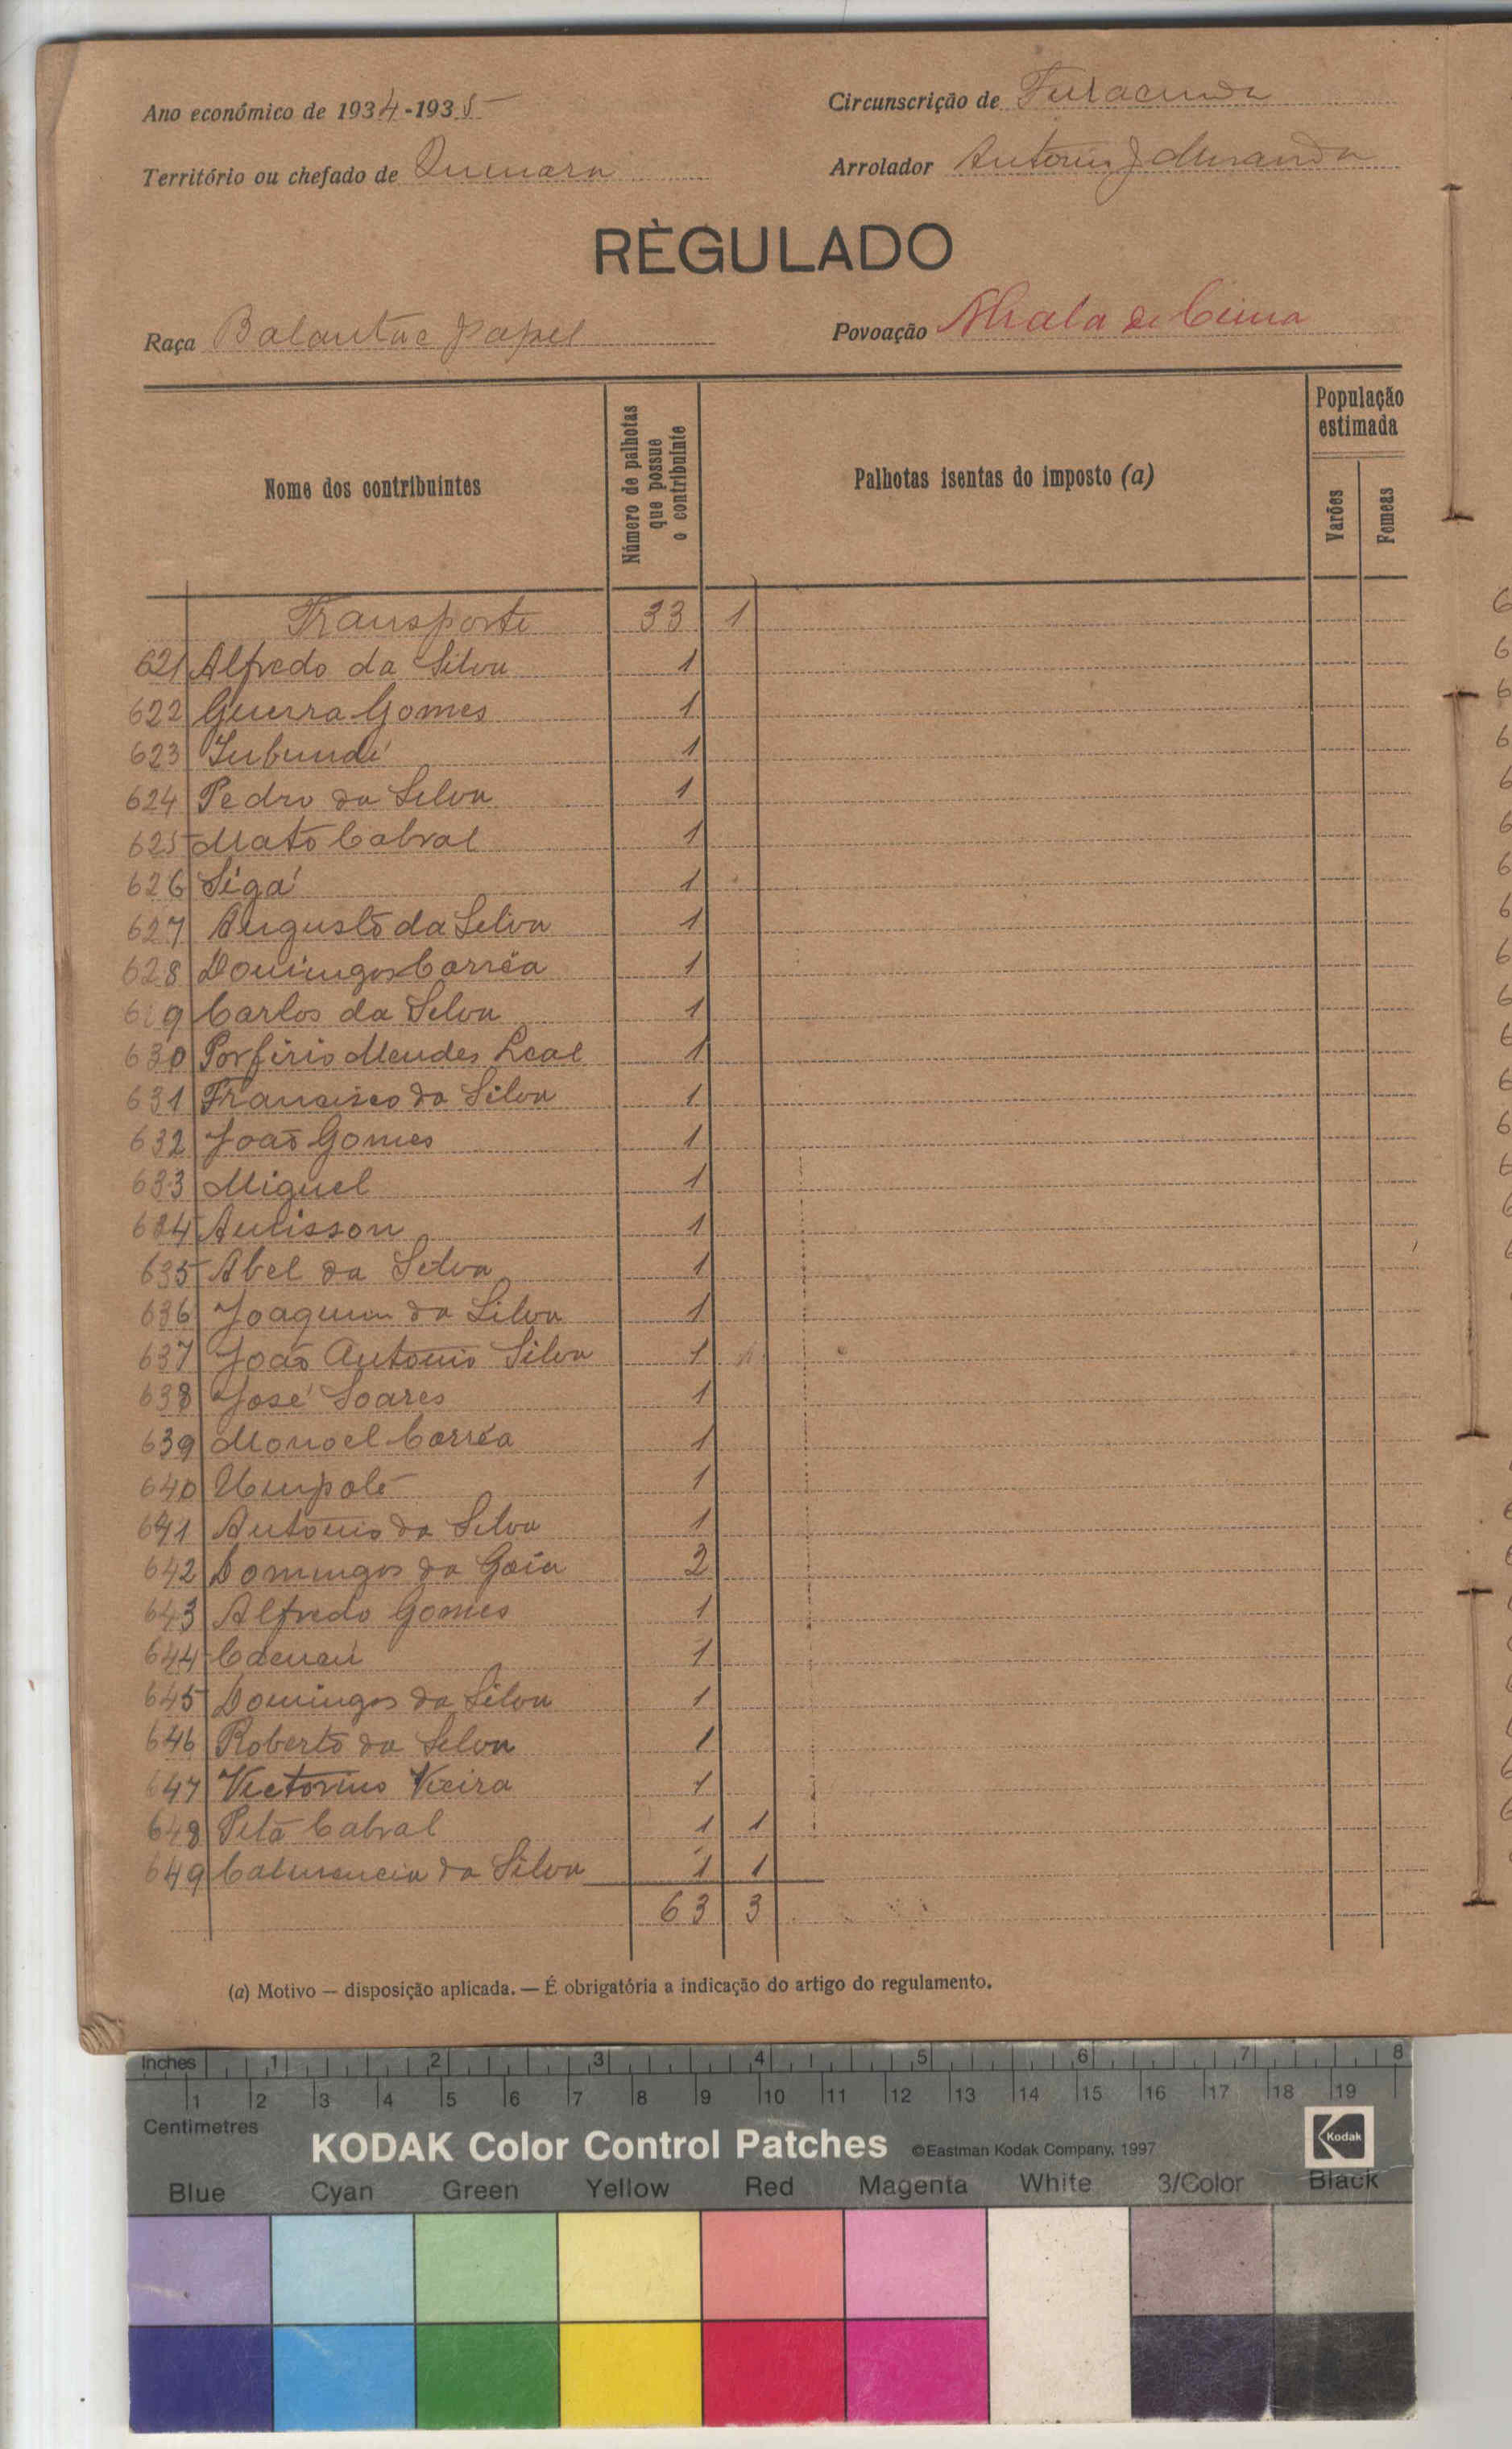 Ano económico de 1934-1935
Circunscrição de
Território ou chefado de Quinara
Arrolador Antonio J Miranda
RÈGULADO
Raça Balanta e Papel
Povoação de Cima
Nome dos contribuintes
Número de palhotas que possue o contribuinte
Palhotas isentas do imposto (a)
População estimada
Varões
Femeas
Transporte 33 1
621 Alfredo da Silva 1
622 Guerra Gomes 1
623 1
624 Pedro da Silva 1
625 Mato Cabral 1
626 Sigá 1
627 Augusto da Silva 1
628 Domingos Corrêa 1
629 Carlos da Silva 1
630 Porfirio Mendes Leal 1
631 Francisco da Silva 1
632 João Gomes 1
633 Miguel 1
634 1
635 Abel da Silva 1
636 Joaquim da Silva 1
637 João Antonio Silva 1
638 José Soares 1
639 Manoel Corrêa 1
640 1
641 Antonio da Silva 1
642 Domingos da Goia 2
643 Alfredo Gomes 1
644 1
645 Domingos da Silva 1
646 Roberto da Silva 1
647 Victorino Vieira 1
648 Cabral 1 1
649 da Silva 1 1
63 3
(a) Motivo — disposição aplicada. — É obrigatória a indicação do artigo do regulamento.
Inches 1 2 3 4 5 6 7 8
1 2 3 4 5 6 7 8 9 10 11 12 13 14 15 16 17 18 19
Centimetres
KODAK Color Control Patches ©Eastman Kodak Company, 1997 Kodak
Blue Cyan Green Yellow Red Magenta White 3/Color Black